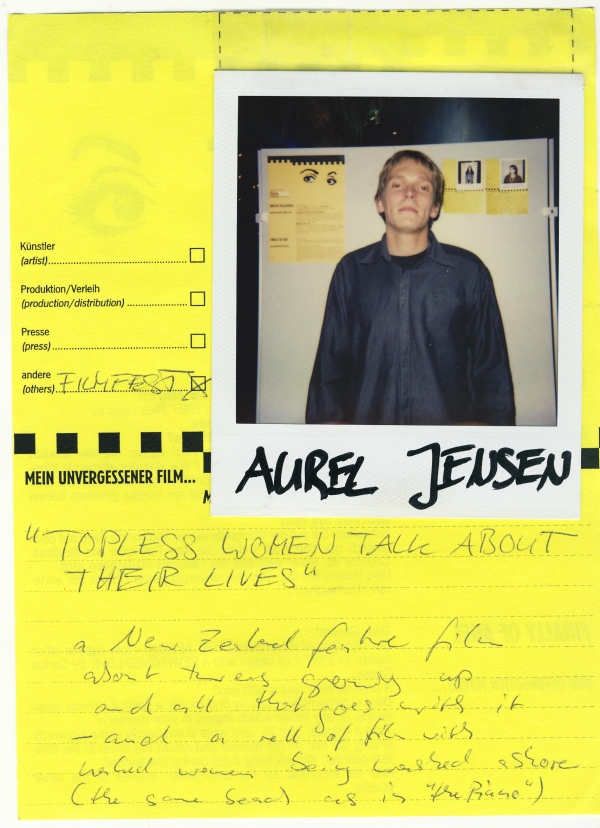 Künstler
(artist)
Produktion/Verleih
(production/distribution)
Presse
(press)
andere
(others) FILMFEST
AUREL JENSEN
MEIN UNVERGESSENER FILM...
"TOPLESS WOMEN TALK ABOUT
THEIR LIVES"
a New Zealand feature film
about growing up
and all that goes with it
- and a roll of film with
naked women being washed ashore
(the same beach as in "the Piano")